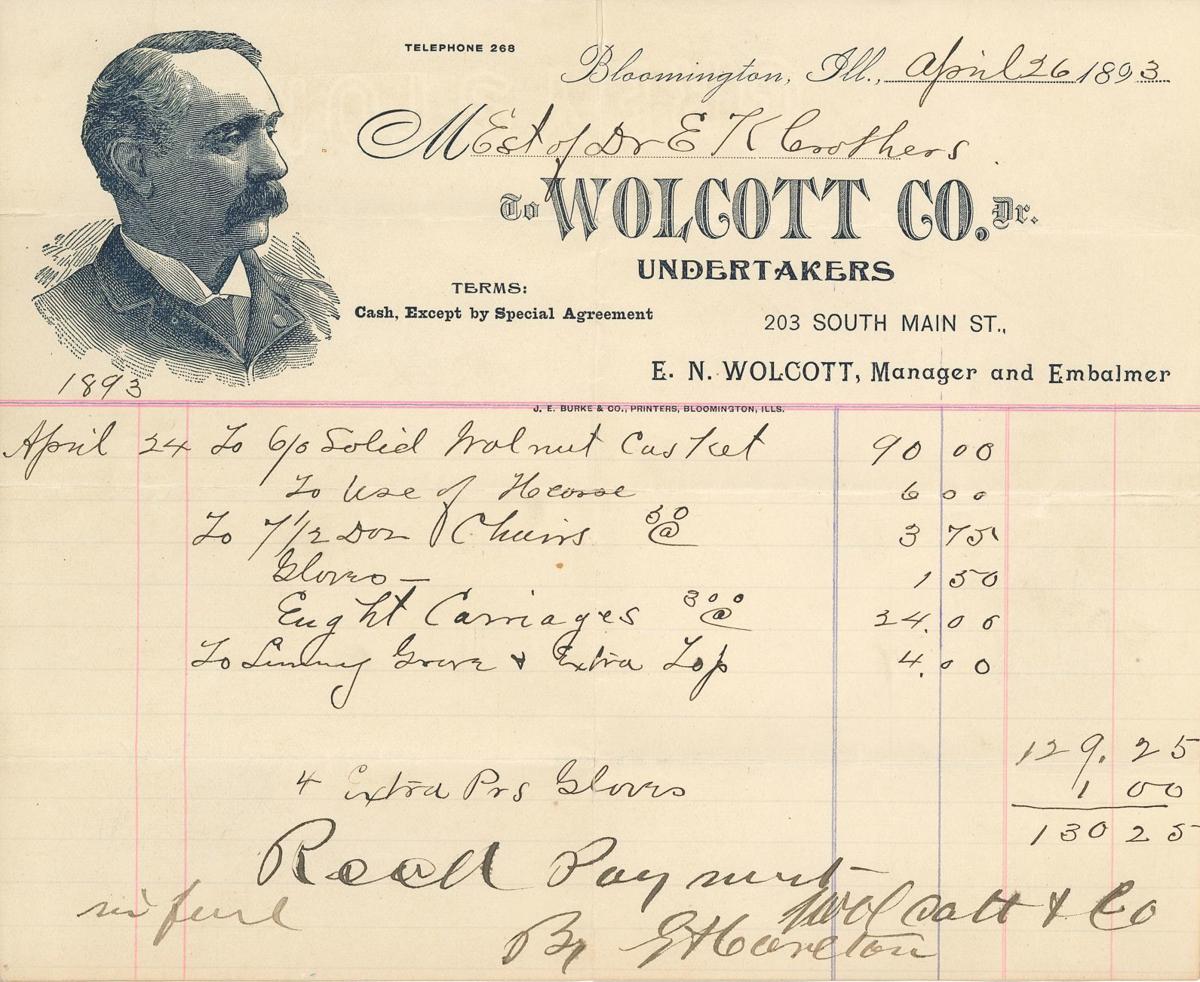 TELEPHONE 268
Bloomington, Ill., April 26 1893
M Est of Dr E K Crothers
To WOLCOTT CO. Dr.
UNDERTAKERS
TERMS:
Cash, Except by Special Agreement
203 SOUTH MAIN ST.,
E. N. WOLCOTT, Manager and Embalmer
1893
J. E. BURKE & CO., PRINTERS, BLOOMINGTON, ILLS.
April 24 To 6/0 Solid Wolnut Casket 90 00
To Use of Hearse 6 00
To 7 1/2 Doz Chairs 50 @ 3 75
Gloves — 1 50
Eught Carriages 3 00 @ 24.00
To Lining Grave & Extra Top 4.00
129.25
4 Extra Prs Gloves 1 00
130 25
Recd Payment
in full Wolcott & Co
By